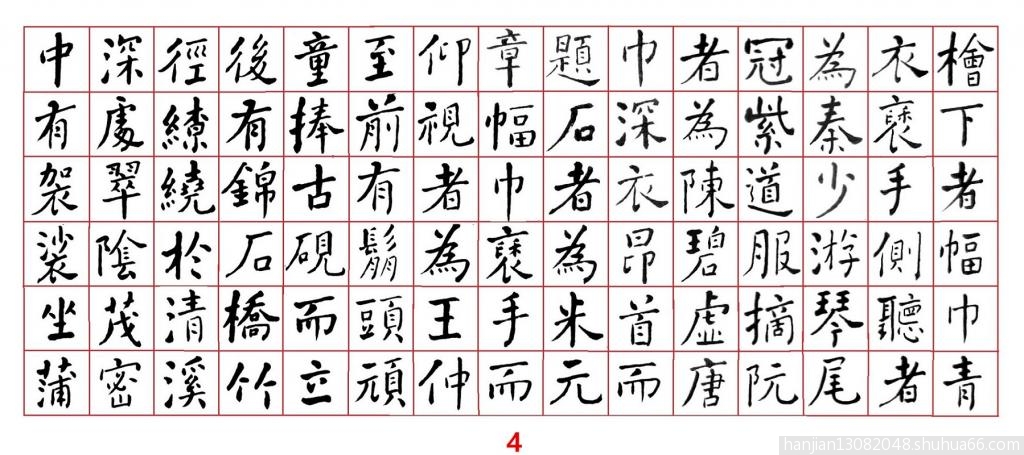 檜下者幅巾青
衣褎手側聽者
為秦少游琴尾
冠紫道服摘阮
者為陳碧虛唐
巾深衣昂首而
題石者為米元
章幅巾褎手而
仰視者為王仲
至前有鬅頭頑
童捧古硯而立
後有錦石橋竹
徑繚繞於清溪
深處翠陰茂密
中有袈裟坐蒲
4
hanjian13082048.shuhua66.com